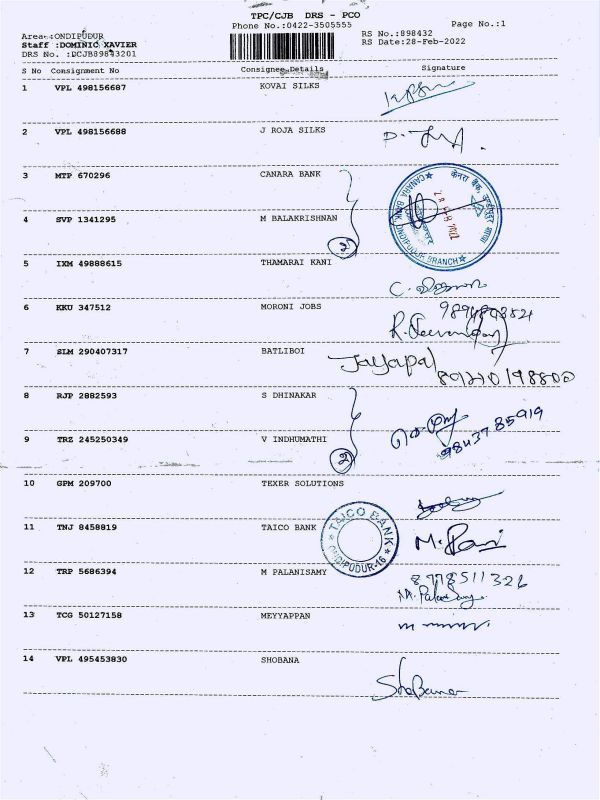 TPC/CJB DRS - PCO
Phone No.:0422-3505555 Page No.:1
Area :ONDIPUDUR RS No.:898432
Staff :DOMINIC XAVIER RS Date:28-Feb-2022
DRS No. :DCJB89843201
S No Consignment No Consignee Details Signature
1 VPL 498156687 KOVAI SILKS
2 VPL 498156688 J ROJA SILKS
3 MTP 670296 CANARA BANK
CANARA BANK, ONDIPUDUR BRANCH
28 FEB 2022
4 SVP 1341295 M BALAKRISHNAN
2
5 IXM 49888615 THAMARAI KANI
6 KKU 347512 MORONI JOBS
7 SLM 290407317 BATLIBOI Jayapal
8 RJP 2882593 S DHINAKAR
9843785919
9 TRZ 245250349 V INDHUMATHI
2
10 GPM 209700 TEXER SOLUTIONS
11 TNJ 8458819 TAICO BANK
TAICO BANK ONDIPUDUR-16
12 TRP 5686394 M PALANISAMY 8778511326
13 TCG 50127158 MEYYAPPAN
14 VPL 495453830 SHOBANA
Shobana